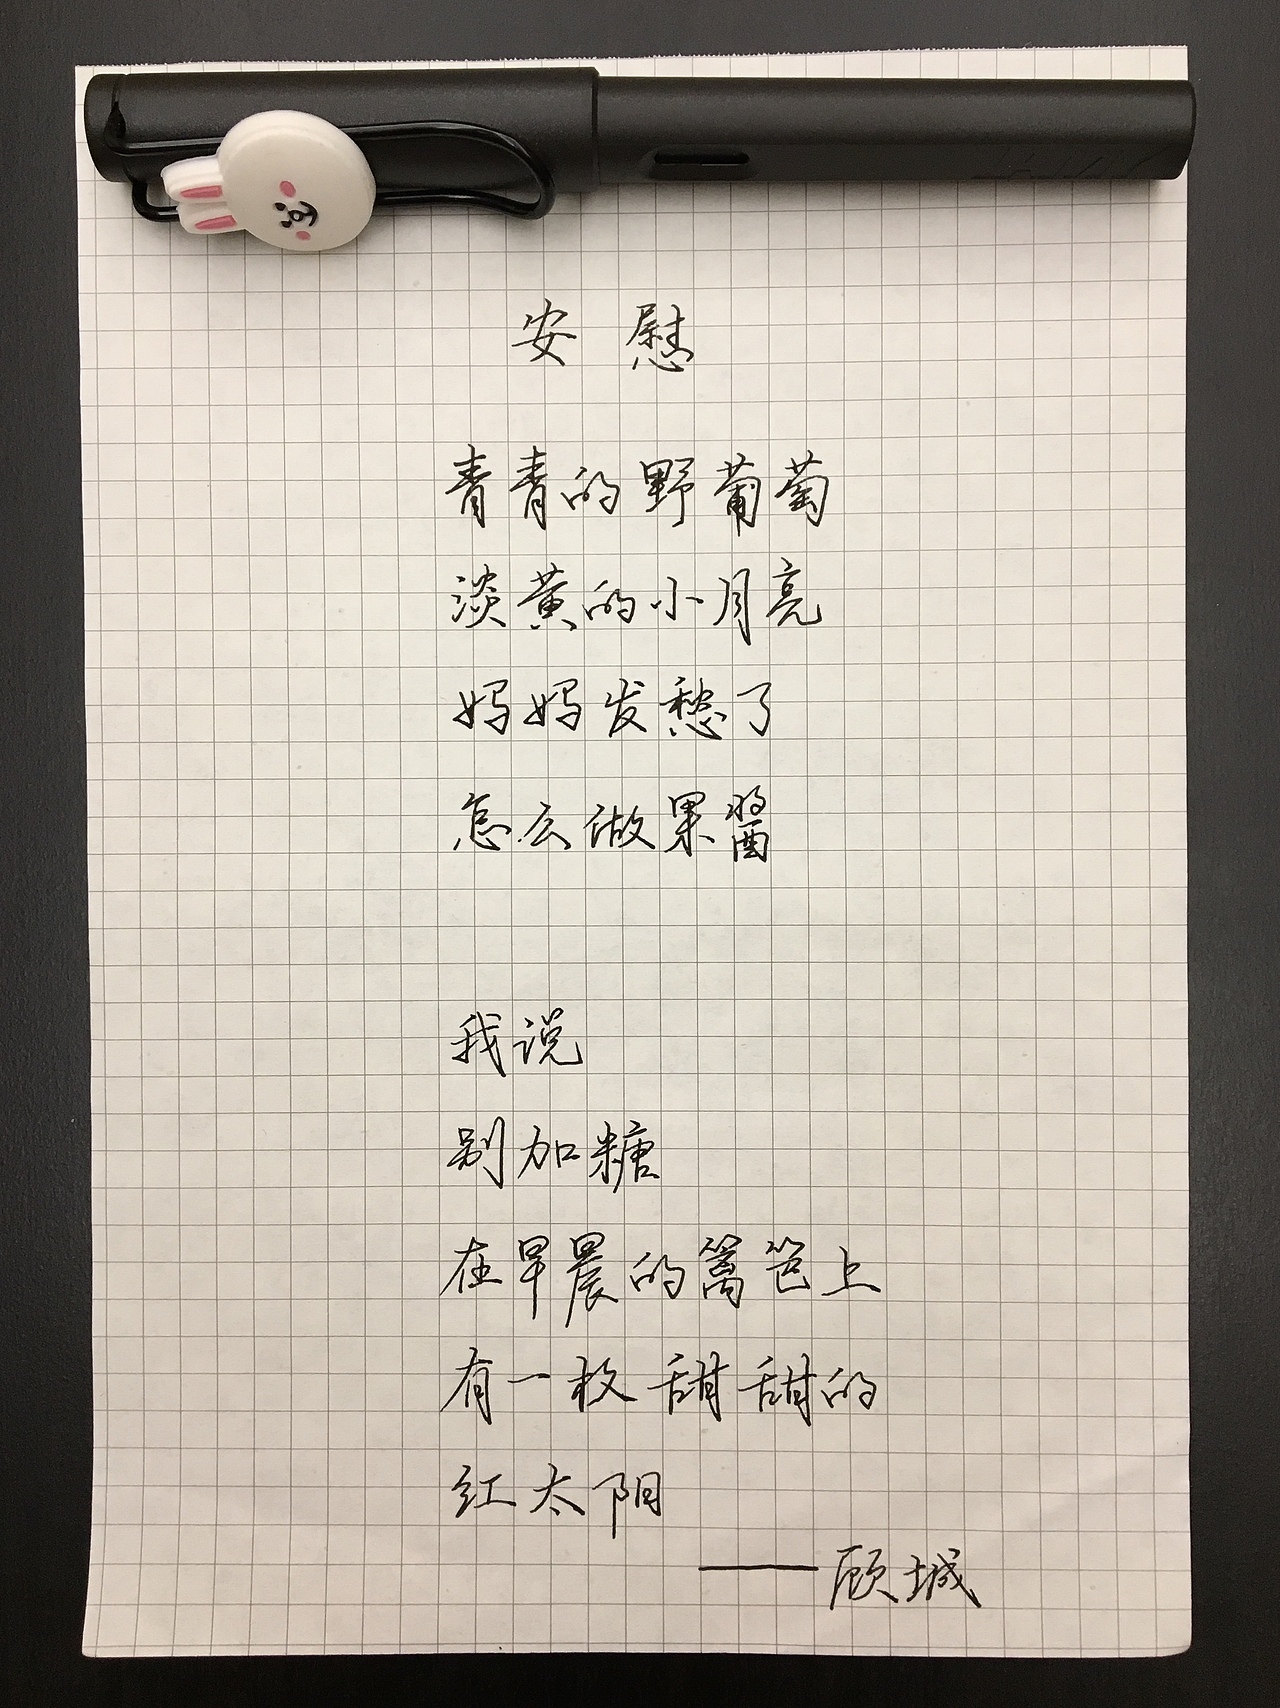 安慰
青青的野葡萄
淡黄的小月亮
妈妈发愁了
怎么做果醬
我说
别加糖
在早晨的篱笆上
有一枚甜甜的
红太阳
——顾城